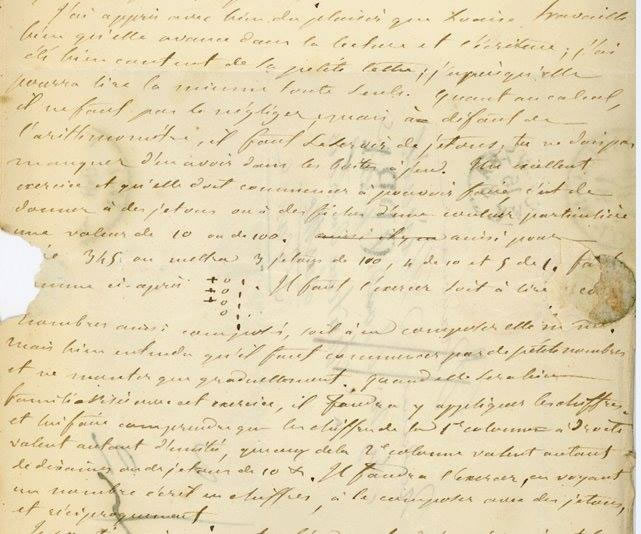 J'ai appris avec bien du plaisir que Louise travaille
bien qu'elle avance dans la lecture et l'écriture ; j'ai
été bien content de sa petite lettre ; j'espère qu'elle
pourra lire la mienne toute seule. Quant au calcul,
il ne faut pas le négliger mais, à défaut de
l'arithmomètre, il faut se servir de jetons, tu ne dois pas
manquer d'en avoir dans les boîtes à jeu. Un excellent
exercice et qu'elle doit commencer à pouvoir faire c'est de
donner à des jetons ou à des fiches d'une couleur particulière
une valeur de 10 ou de 100. ainsi pour
345 on mettra 3 jetons de 100, 4 de 10 et 5 de 1.
comme ci-après . Il faut l'exercer soit à lire
nombres ainsi composés, soit à en composer elle même
mais bien entendu qu'il faut commencer par de petits nombres
et ne monter que graduellement. Quand elle sera bien
familiarisée avec cet exercice, il faudra y appliquer les chiffres
et lui faire comprendre que les chiffres de la 1re colonne à droite
valent autant d'unités, que ceux de la 2e colonne valent autant
de dizaines ou de jetons de 10 &. Il faudra l'exercer, en voyant
un nombre écrit en chiffres, à le composer avec des jetons,
et réciproquement